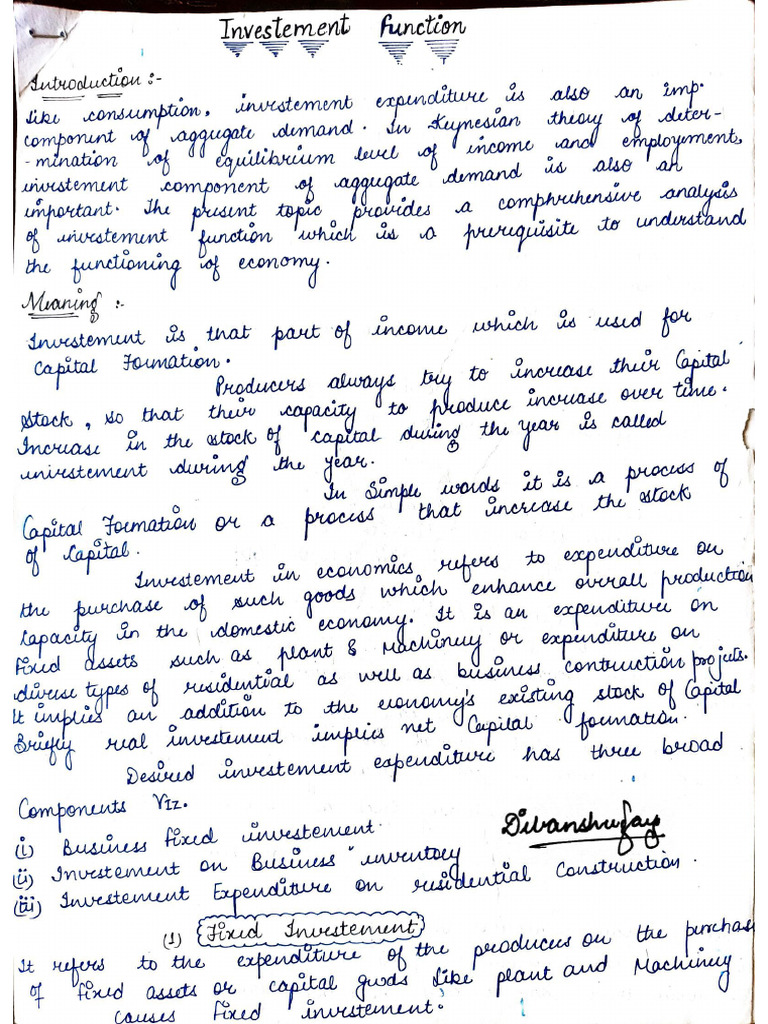 Investement function
Introduction :-
Like consumption, investement expenditure is also an imp.
component of aggregate demand. In Keynesian theory of deter-
-mination of equilibrium level of income and employement,
investement component of aggregate demand is also an
important. The present topic provides a comprehensive analysis
of investement function which is a prerequisite to understand
the functioning of economy.
Meaning :-
Investement is that part of income which is used for
Capital Formation.
Producers always try to increase their Capital
stock, so that their capacity to produce increase over time.
Increase in the stock of capital during the year is called
investement during the year.
In Simple words it is a process of
Capital Formation or a process that increase the stock
of Capital.
Investement in economics refers to expenditure on
the purchase of such goods which enhance overall production
Capacity in the domestic economy. It is an expenditure on
fixed assets such as plant & Machinery or expenditure on
diverse types of residential as well as business contruction projects.
It implies an addition to the economy's existing stock of Capital
Briefly real investement implies net Capital formation.
Desired investement expenditure has three broad
Components Viz.
(i) Business fixed investement.
Divanshu
(ii) Investement on Business inventory
(iii) Investement Expenditure on residential Construction.
(1) Fixed Investement
It refers to the expenditure of the producers on the purchas
of fixed assets or capital goods like plant and Machinery
causes fixed investement.